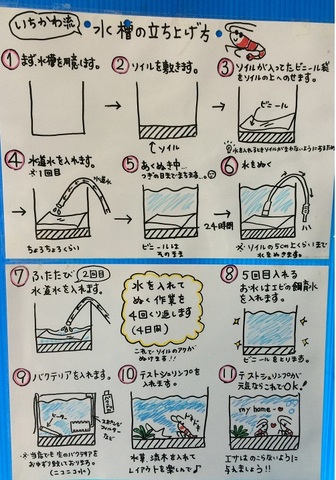 いちかわ流
水槽の立ち上げ方
① まず、水槽を用意します。
② ソイルを敷きます。
↑ソイル
③ ソイルが入ってたビニール袋
をソイルの上へのせます。
ビニール
④ 水道水を入れます。
※1回目
水道水
ちょろちょろくらい
⑤ あくぬき中…
つぎの日までまちます…
ビニールは
そのまま
24時間
⑥ 水をぬく
※ソイルの5cm上くらいまで
水をぬきます。
⑦ ふたたび 2回目
水道水を入れます。
水を入れて
ぬく作業を
4回くり返します
(4日間)
これでソイルのアクが
ぬけます!!
⑧ 5回目入れる
お水はエビの飼育水
を入れます。
ビニールをとります。
⑨ バクテリアを入れます。
ヒーター
スポンジ
フィルター
など
※当店でも生のバクテリアを
おゆずり致しております。
(ニコニコ水)
⑩ テストシュリンプを
入れます。
水草、流木を入れて
レイアウトを楽しんで♪
⑪ テストシュリンプが
元気ならこれでOK!
my home
エサはのこらないように
与えましょう!!